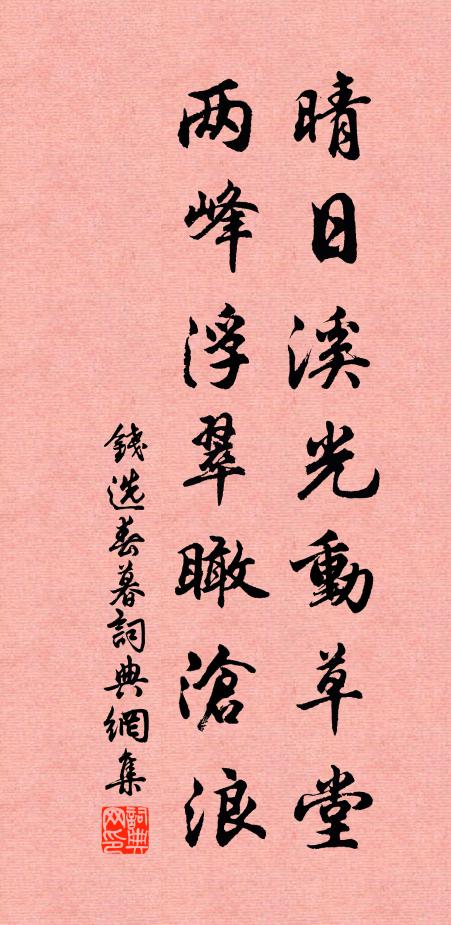 晴日溪光動草堂
两峰浮翠瞰滄浪
錢选春暮詞典網集
詞典网印